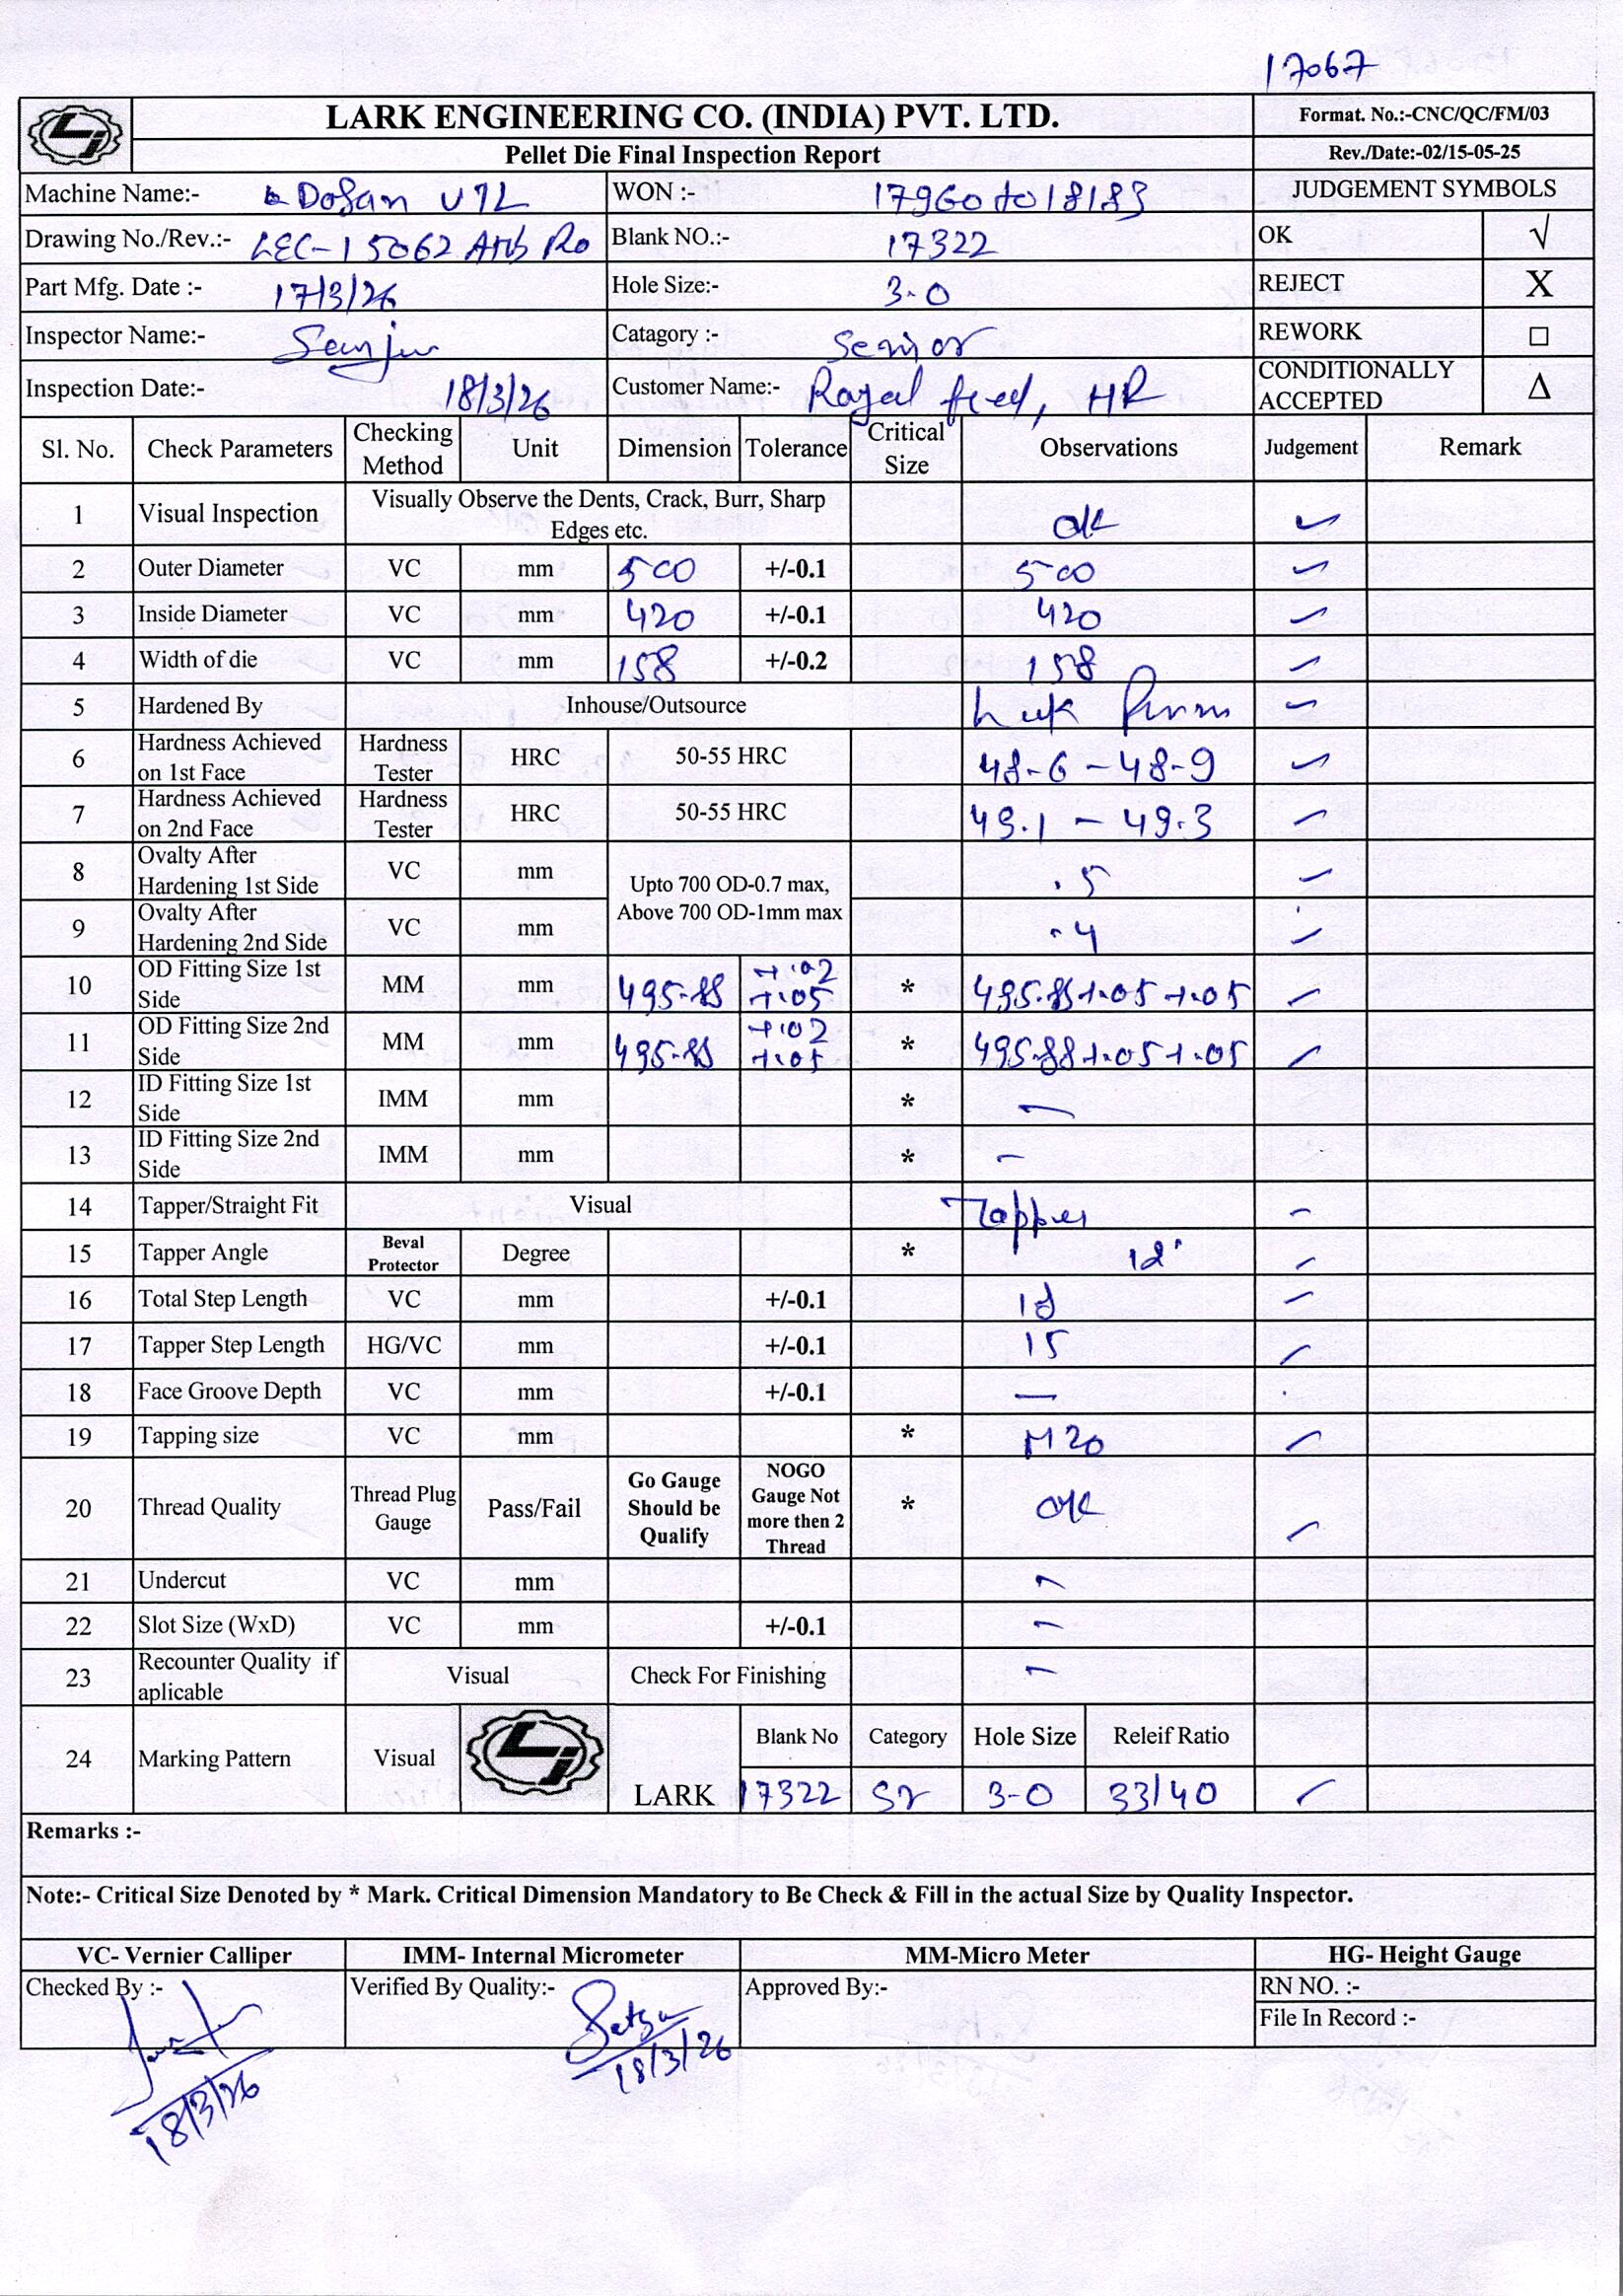 17067
LARK ENGINEERING CO. (INDIA) PVT. LTD.
Format. No.:-CNC/QC/FM/03
Pellet Die Final Inspection Report
Rev./Date:-02/15-05-25
Machine Name:- Dosan V7L WON :- 17960 to 18183 JUDGEMENT SYMBOLS
Drawing No./Rev.:- LEC-15062 Blank NO.:- 17322 OK √
Part Mfg. Date :- 17/3/26 Hole Size:- 3.0 REJECT X
Inspector Name:- Sanju Catagory :- Senior REWORK □
Inspection Date:- 18/3/26 Customer Name:- Royal feed, HR CONDITIONALLY ACCEPTED Δ
Sl. No. Check Parameters Checking Method Unit Dimension Tolerance Critical Size Observations Judgement Remark
1 Visual Inspection Visually Observe the Dents, Crack, Burr, Sharp Edges etc. ok ✓
2 Outer Diameter VC mm 500 +/-0.1 500 ✓
3 Inside Diameter VC mm 420 +/-0.1 420 ✓
4 Width of die VC mm 158 +/-0.2 158 ✓
5 Hardened By Inhouse/Outsource ✓
6 Hardness Achieved on 1st Face Hardness Tester HRC 50-55 HRC 48-6 - 48-9 ✓
7 Hardness Achieved on 2nd Face Hardness Tester HRC 50-55 HRC 49.1 - 49.3 ✓
8 Ovalty After Hardening 1st Side VC mm Upto 700 OD-0.7 max, Above 700 OD-1mm max .5 ✓
9 Ovalty After Hardening 2nd Side VC mm .4 ✓
10 OD Fitting Size 1st Side MM mm 495.88 +.02 +.05 * 495.88+.05+.05 ✓
11 OD Fitting Size 2nd Side MM mm 495.88 +.02 +.05 * 495.88+.05+.05 ✓
12 ID Fitting Size 1st Side IMM mm * —
13 ID Fitting Size 2nd Side IMM mm * -
14 Tapper/Straight Fit Visual Tapper ✓
15 Tapper Angle Beval Protector Degree * ✓
16 Total Step Length VC mm +/-0.1 ✓
17 Tapper Step Length HG/VC mm +/-0.1 15 ✓
18 Face Groove Depth VC mm +/-0.1 —
19 Tapping size VC mm * M20 ✓
20 Thread Quality Thread Plug Gauge Pass/Fail Go Gauge Should be Qualify NOGO Gauge Not more then 2 Thread * OK ✓
21 Undercut VC mm -
22 Slot Size (WxD) VC mm +/-0.1 -
23 Recounter Quality if aplicable Visual Check For Finishing -
24 Marking Pattern Visual LARK Blank No Category Hole Size Releif Ratio
17322 Sr 3-0 33/40 ✓
Remarks :-
Note:- Critical Size Denoted by * Mark. Critical Dimension Mandatory to Be Check & Fill in the actual Size by Quality Inspector.
VC- Vernier Calliper IMM- Internal Micrometer MM-Micro Meter HG- Height Gauge
Checked By :- Verified By Quality:- Approved By:- RN NO. :-
File In Record :-
18/3/26 18/3/26